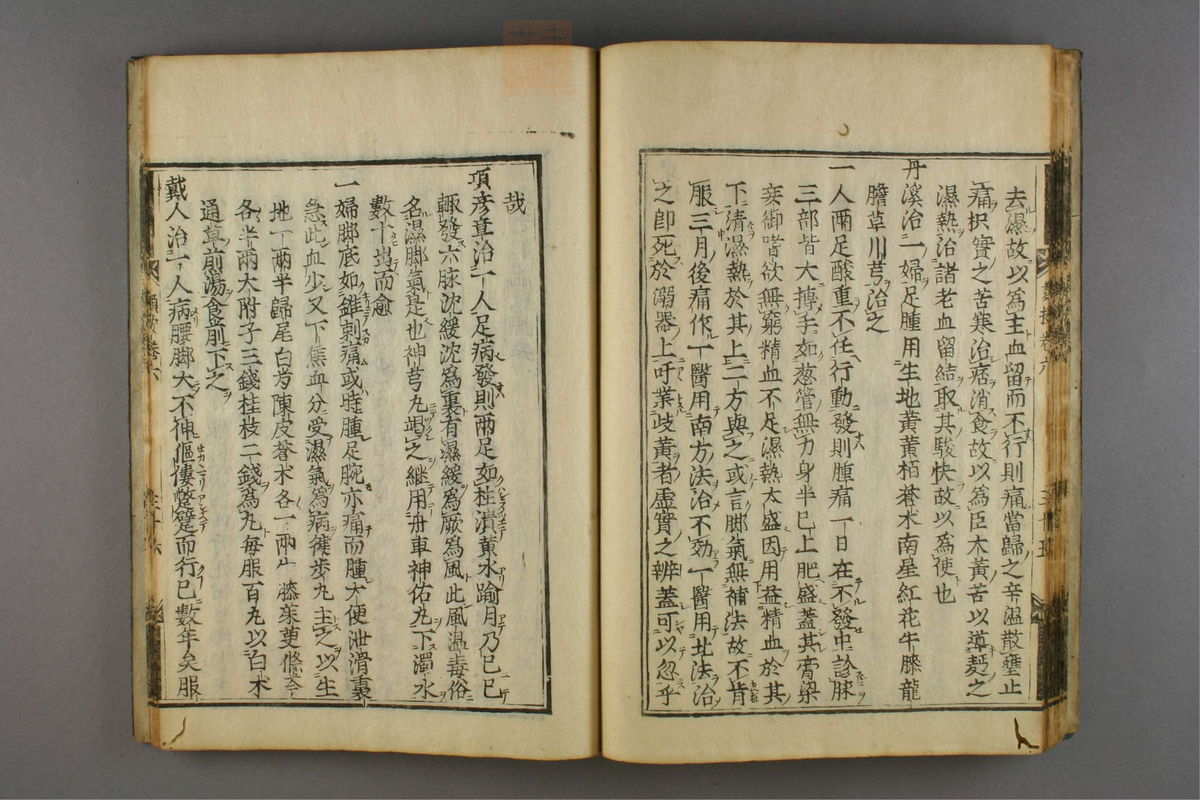 去濕故以為主血留而不行則痛當歸之辛温散壅止
痛枳實之苦寒治痞消食故以為臣大黄苦以導麪之
濕熱治諸老血留結取其駿快故以為使也
丹溪治一婦足腫用生地黄黄栢蒼术南星紅花牛膝龍
膽草川芎治之
一人兩足酸重不任行動發則腫痛一日在不發中診脉
三部皆大搏手如葱管無力身半已上肥盛蓋其膏梁
妾御嗜欲無窮精血不足濕熱太盛因用益精血於其
下清濕熱於其上二方與之或言脚氣無補法故不肯
服三月後痛作一醫用南方法治不効一醫用北法治
之即死於溺器上吁業歧黄者虚實之辨蓋可以忽乎
哉
項彦章治一人足病發則兩足如桂潰黄水踰月乃已已
輙發六脉沈緩沈為裏有濕緩為厥為風此風温毒俗
名濕脚氣是也神芎丸竭之継用舟車神佑丸下濁水
數十出而愈
一婦脚底如錐刺痛或時腫足腕亦痛而腫大便泄滑裏
急此血少又下焦血分受濕氣為病健步丸主之以生
地一兩半歸尾白芍陳皮蒼术各一兩牛膝茱萸條芩
各半兩大附子三錢桂枝二錢為丸毎服百丸以白术
通草煎湯食前下之
戴人治一人病腰脚大不伸傴僂蹩躄而行已數年矣服